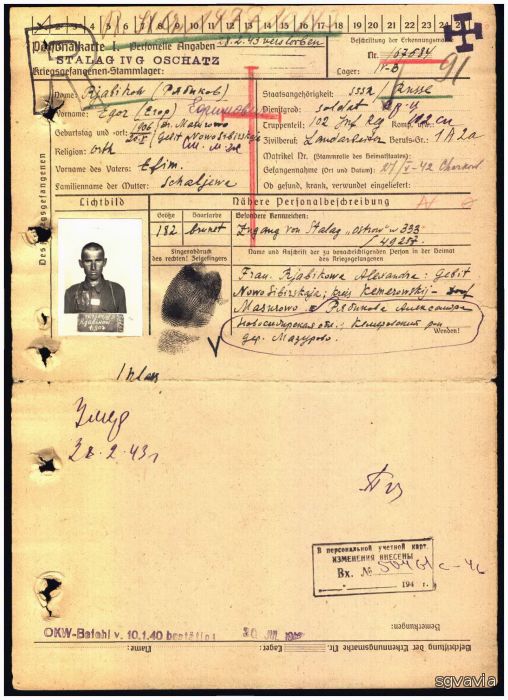 1 2 3 4 5 6 7 8 9 10 11 12 13 14 15 16 17 18 19 20 21 22 23 24 25
Personalkarte I: Personelle Angaben
.2.43 verstorben
Beschriftung der Erkennungsmarke
STALAG IV G OSCHATZ
Nr.
Kriegsgefangenen-Stammlager:
Lager: IV-B
91
Des Kriegsgefangenen
Name: Rjabikow (Рябиков)
Staatsangehörigkeit: Russe
Vorname: Egor (Егор) Ефимович
Dienstgrad: Soldat
Geburtstag und -ort: Masurowo
Gebit Nowosibirskaja
Truppenteil: 102 Inf. Reg. Komp. usw.:
Religion: orth
Zivilberuf: Landarbeiter Berufs-Gr.: 1A2a
Matrikel Nr. (Stammrolle des Heimatstaates):
Vorname des Vaters: Efim.
Gefangennahme (Ort und Datum): 27/V-42 Charkow
Familienname der Mutter: Schaljewa
Ob gesund, krank, verwundet eingeliefert:
Lichtbild
Nähere Personalbeschreibung
Größe
Haarfarbe
Besondere Kennzeichen:
182
brunet
Zugang von Stalag "Ostrow" 333
Fingerabdruck
des rechten! Zeigefingers
Name und Anschrift der zu benachrichtigenden Person in der Heimat
des Kriegsgefangenen
Frau. Rjabikowa Alexandra: Gebit
Nowosibirskaja; kreis Kemerowskij
Masurowo Рябикова Александра
Новосибирская обл.; Кемеровский рон
дер. Мазурово.
Wenden!
Умер
28.2.43г
В персональной учетной карт.
ИЗМЕНЕНИЯ ВНЕСЕНЫ
Вх. №
194 г.
Bemerkungen:
OKW-Befehl v. 10.1.40 bestätigt
Beschriftung der Erkennungsmarke Nr.
Lager:
Name:
sgvavia